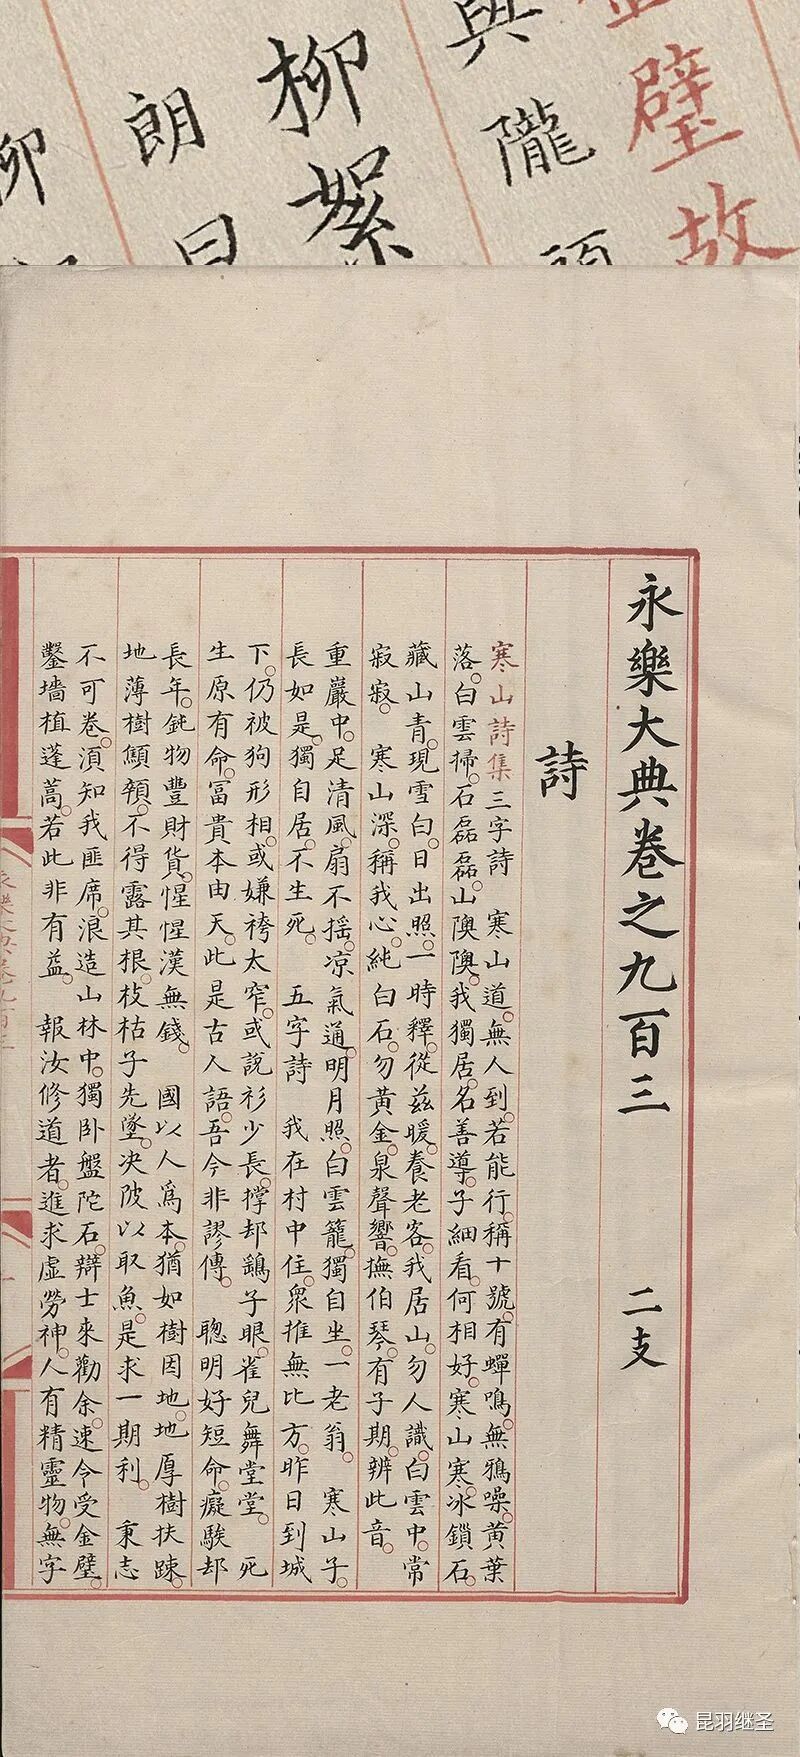 璧故
與隴頭
柳絮
朗日
柳
永樂大典卷之九百三 二支
詩
寒山詩集三字詩 寒山道。無人到。若能行。稱十號。有蟬鳴。無鴉噪。黃葉
落。白雲掃。石磊磊。山隩隩。我獨居。名善導。子細看。何相好。寒山寒。冰鎖石。
藏山青。現雪白。日出照。一時釋。從茲暖。養老客。我居山。勿人識。白雲中。常
寂寂。 寒山深。稱我心。純白石。勿黃金。泉聲響。撫伯琴。有子期。辨此音。
重巖中。足清風。扇不搖。凉氣通。明月照。白雲籠。獨自坐。一老翁。 寒山子。
長如是。獨自居。不生死。 五字詩 我在村中住。衆推無比方。昨日到城
下。仍被狗形相。或嫌袴太窄。或說衫少長。撑却鷂子眼。雀兒舞堂堂。 死
生原有命。富貴本由天。此是古人語。吾今非謬傳。 聰明好短命。癡騃却
長年。鈍物豐財貨。惺惺漢無錢。 國以人爲本。猶如樹因地。地厚樹扶踈。
地薄樹顦顇。不得露其根。枝枯子先墜。决陂以取魚。是求一期利。 秉志
不可卷。須知我匪席。浪造山林中。獨卧盤陀石。辯士來勸余。速令受金璧。
鑿墻植蓬蒿。若此非有益。 報汝修道者。進求虛勞神。人有精靈物。無字
永樂大典卷九百三
昆羽继圣